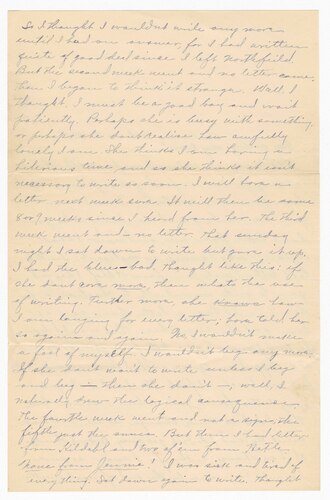 So I thought I wouldn't write any more
until I had an answer for I had written
quite a good deal since I left Northfield.
But the second week went and no letter came,
then I began to think it strange. Well I
thought, I must be a good boy and wait
patiently. Perhaps she is busy with something
or perhaps she dont realize how awfully
lonely I am. She thinks I am having an
hilarious time and so she thinks it isn't
necessary to write so soon. I will have a
letter next week sure. It will then be some
8 or 9 weeks since I heard from her. The third
week went and no letter. That sunday
night I sat down to write but gave it up.
I had the blues — bad. Thought like this: if
she dont care more, then what's the use
of writing. Further more she knows how
I am longing for every letter, have told her
so again and again. No, I wouldn't make
a fool of myself. I wouldn't beg any more.
If she don't want to write unless I beg
and beg — then she don't —; well, I
naturally drew the logical consequences.
The fourth week went and not a sign, the
fifth just the same. But then I had letter
from Kildahl and two from
None from Jennie! I was sick and tired of
everything. Sat down again to write. Thought